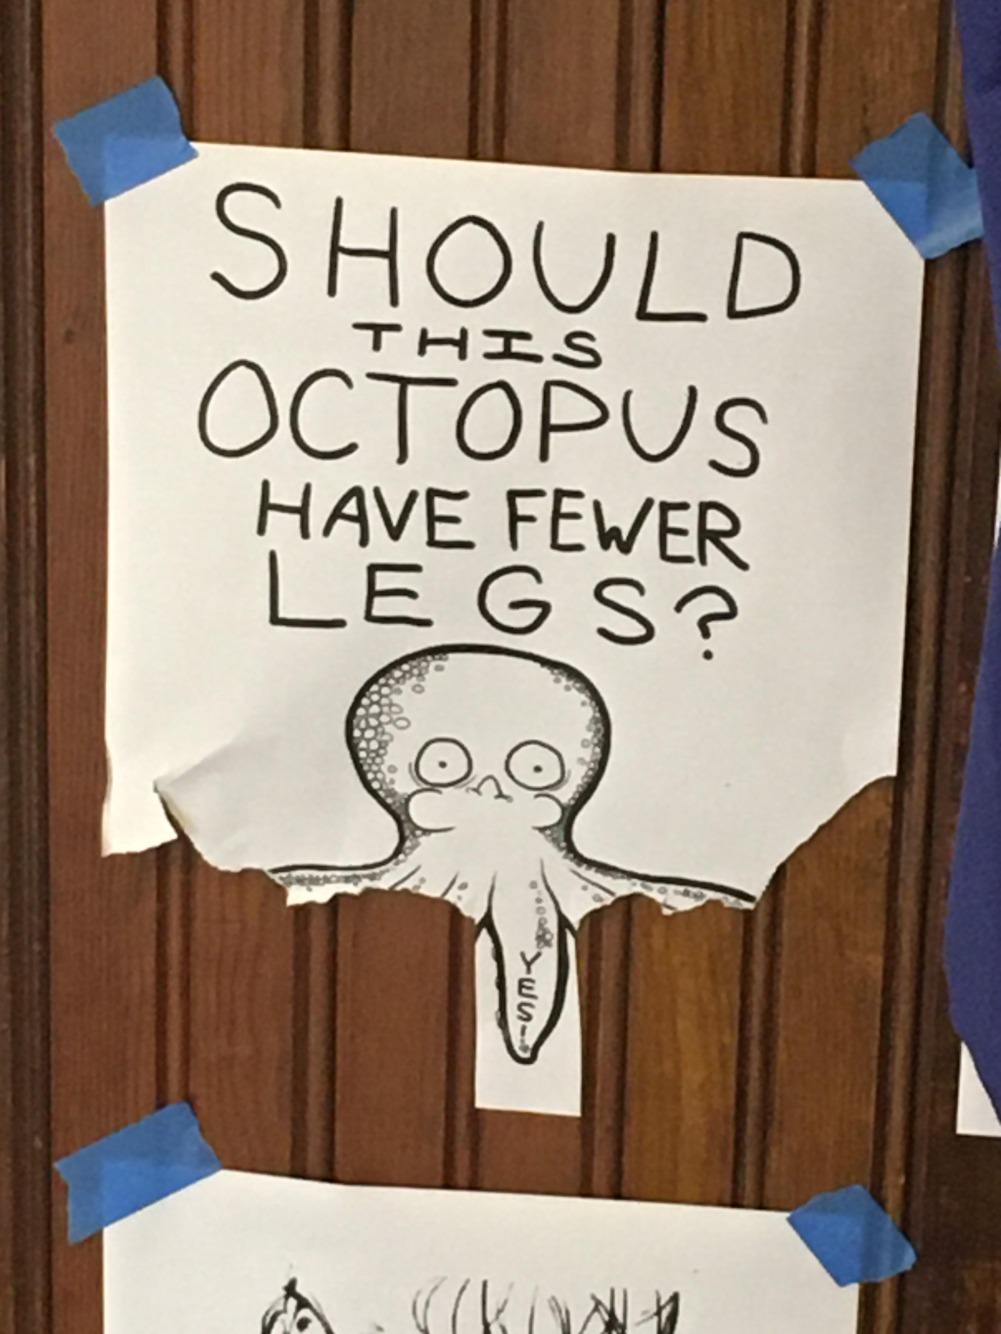 SHOULD
THIS
OCTOPUS
HAVE FEWER
LEGS?
YES!